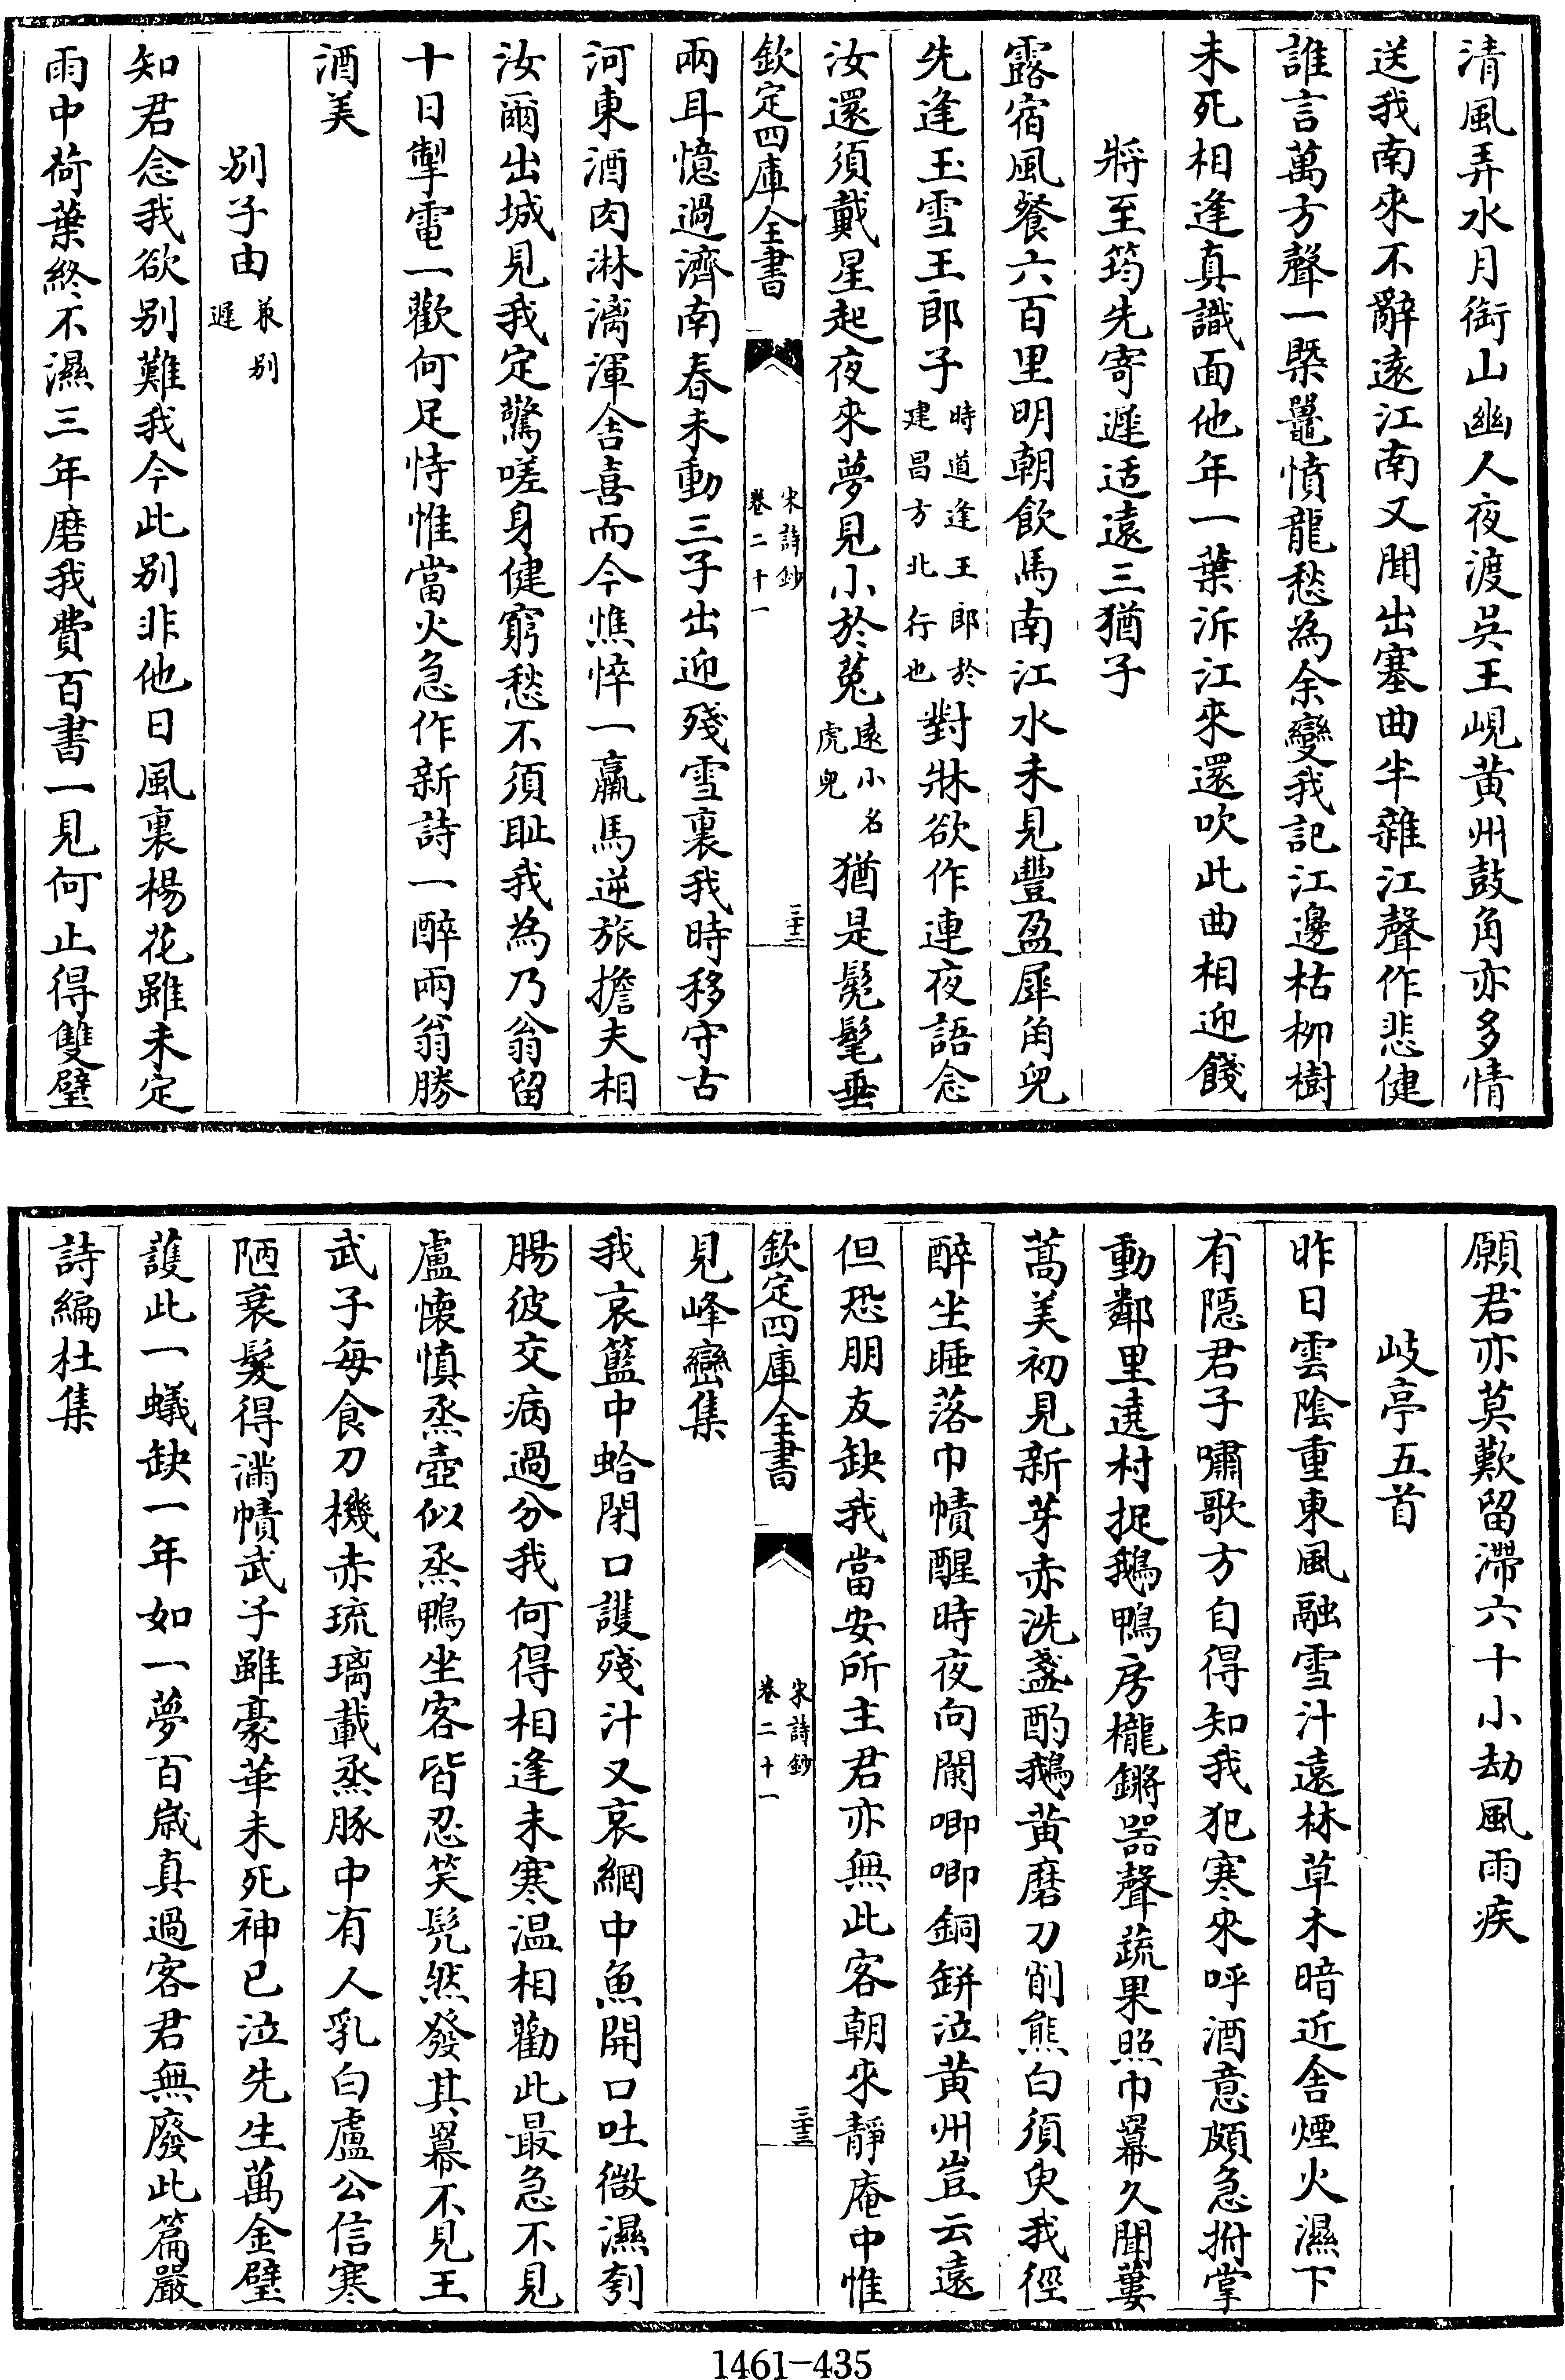 清風弄水月銜山幽人夜渡吳王峴黃州鼓角亦多情
送我南來不辭遠江南又聞出塞曲半雜江聲作悲健
誰言萬方聲一槩鼉憤龍愁為余變我記江邊枯柳樹
未死相逢真識面他年一葉泝江來還吹此曲相迎餞
將至筠先寄遲适遠三猶子
露宿風餐六百里明朝飲馬南江水未見豐盈犀角兒
先逢玉雪王郎子時道逢王郎於建昌方北行也對牀欲作連夜語念
汝還須戴星起夜來夢見小於菟遠小名虎兒猶是髧髦垂
欽定四庫全書
宋詩鈔
卷二十一
三十二
兩耳憶過濟南春未動三子出迎殘雪裏我時移守古
河東酒肉淋漓渾舍喜而今憔悴一羸馬逆旅擔夫相
汝爾出城見我定驚嗟身健窮愁不須耻我為乃翁留
十日掣電一歡何足恃惟當火急作新詩一醉兩翁勝
酒美
別子由兼別遲
知君念我欲別難我今此別非他日風裏楊花雖未定
雨中荷葉終不濕三年磨我費百書一見何止得雙璧
願君亦莫歎留滯六十小劫風雨疾
岐亭五首
昨日雲陰重東風融雪汁遠林草木暗近舍煙火濕下
有隱君子嘯歌方自得知我犯寒來呼酒意頗急拊掌
動鄰里遶村捉鵝鴨房櫳鏘器聲蔬果照巾羃久聞蔞
蒿美初見新芽赤洗盞酌鵝黃磨刀削熊白須臾我徑
醉坐睡落巾幘醒時夜向闌唧唧銅缾泣黃州豈云遠
但恐朋友缺我當安所主君亦無此客朝來靜庵中惟
欽定四庫全書
宋詩鈔
卷二十一
三十三
見峰巒集
我哀籃中蛤閉口護殘汁又哀網中魚開口吐微濕刳
腸彼交病過分我何得相逢未寒溫相勸此最急不見
盧懷慎烝壺似烝鴨坐客皆忍笑髡然發其羃不見王
武子每食刀機赤琉璃載烝豚中有人乳白盧公信寒
陋衰髮得滿幘武子雖豪華未死神已泣先生萬金璧
護此一蟻缺一年如一夢百歲真過客君無廢此篇嚴
詩編杜集
1461-435